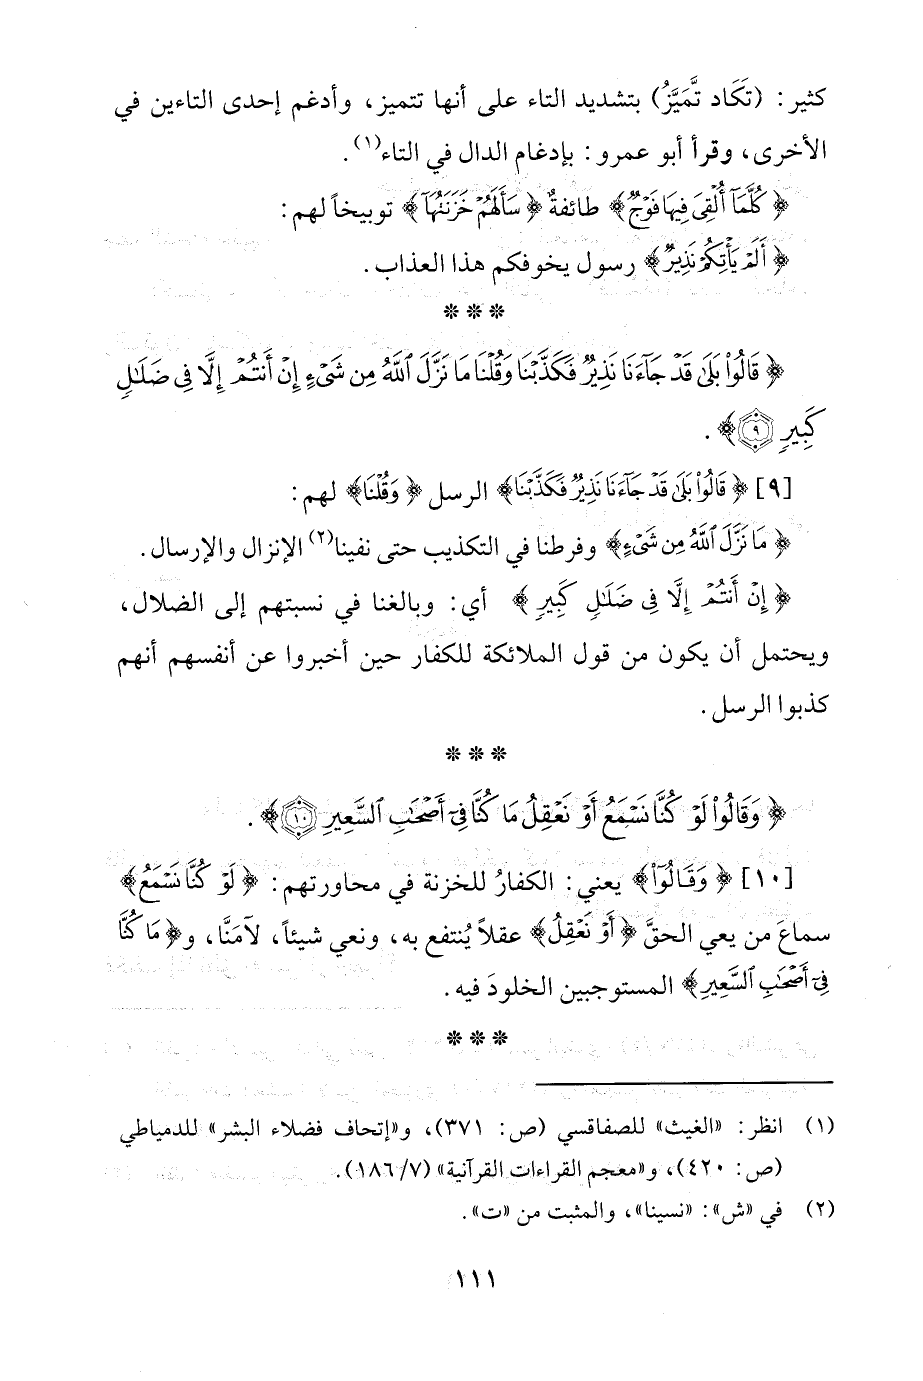 كثير: (تَكَاد تَّمَيَّزُ) بتشديد التاء على أنها تتميز، وأدغم إحدى التاءين في
الأخرى، وقرأ أبو عمرو: بإدغام الدال في التاء(١).
﴿كُلَّمَآ أُلْقِىَ فِيهَا فَوْجٌ﴾ طائفةٌ ﴿سَأَلَهُمْ خَزَنَتُهَآ﴾ توبيخاً لهم:
﴿أَلَمْ يَأْتِكُمْ نَذِيرٌ﴾ رسول يخوفكم هذا العذاب.
***
﴿قَالُوا۟ بَلَىٰ قَدْ جَآءَنَا نَذِيرٌ فَكَذَّبْنَا وَقُلْنَا مَا نَزَّلَ ٱللَّهُ مِن شَىْءٍ إِنْ أَنتُمْ إِلَّا فِى ضَلَـٰلٍ
كَبِيرٍ ٩﴾.
[٩] ﴿قَالُوا۟ بَلَىٰ قَدْ جَآءَنَا نَذِيرٌ فَكَذَّبْنَا﴾ الرسل ﴿وَقُلْنَا﴾ لهم:
﴿مَا نَزَّلَ ٱللَّهُ مِن شَىْءٍ﴾ وفرطنا في التكذيب حتى نفينا(٢) الإنزال والإرسال.
﴿إِنْ أَنتُمْ إِلَّا فِى ضَلَـٰلٍ كَبِيرٍ﴾ أي: وبالغنا في نسبتهم إلى الضلال،
ويحتمل أن يكون من قول الملائكة للكفار حين أخبروا عن أنفسهم أنهم
كذبوا الرسل.
***
﴿وَقَالُوا۟ لَوْ كُنَّا نَسْمَعُ أَوْ نَعْقِلُ مَا كُنَّا فِىٓ أَصْحَـٰبِ ٱلسَّعِيرِ ١٠﴾.
[١٠] ﴿وَقَالُوا۟﴾ يعني: الكفارُ للخزنة في محاورتهم: ﴿لَوْ كُنَّا نَسْمَعُ﴾
سماعَ من يعي الحقَّ ﴿أَوْ نَعْقِلُ﴾ عقلاً يُنتفع به، ونعي شيئاً، لآمَنَّا، و﴿مَا كُنَّا
فِىٓ أَصْحَـٰبِ ٱلسَّعِيرِ﴾ المستوجبين الخلودَ فيه.
***
(١) انظر: «الغيث» للصفاقسي (ص: ٣٧١)، و«إتحاف فضلاء البشر» للدمياطي
(ص: ٤٢٠)، و«معجم القراءات القرآنية» (٧/ ١٨٦).
(٢) في «ش»: «نسينا»، والمثبت من «ت».
١١١